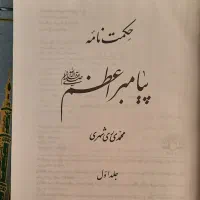 حکمت نامه
پیامبر اعظم ﷺ
محمدی ری شهری
جلد اول